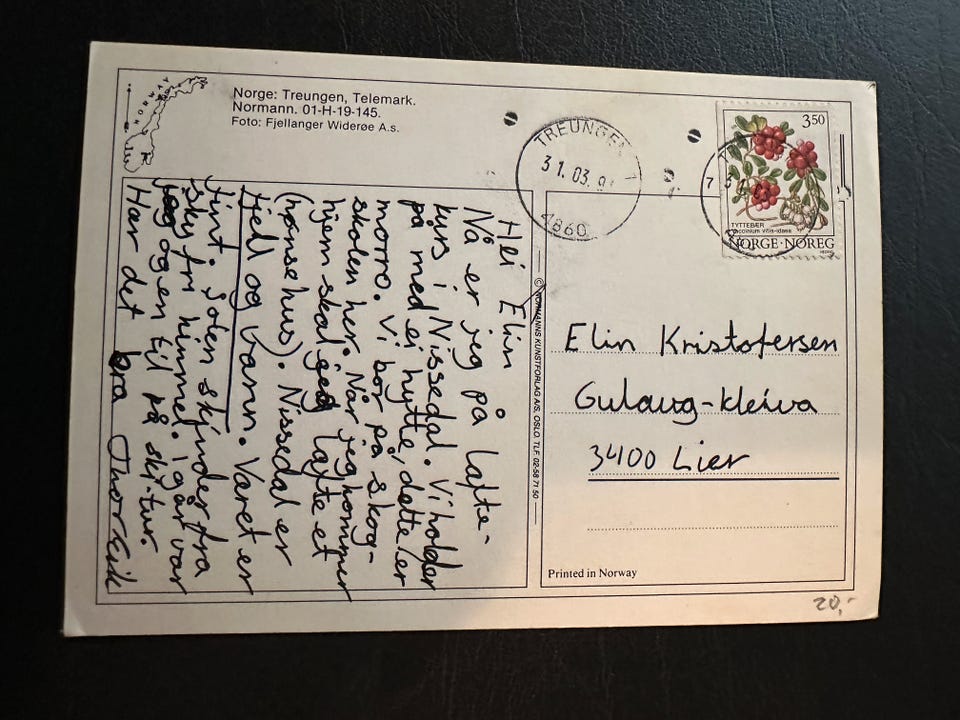 NORWAY
Norge: Treungen, Telemark.
Normann. 01-H-19-145.
Foto: Fjellanger Widerøe A.s.
TREUNGEN
31.03.9
4860
3.50
TYTTEBÆR
Vaccinium vitis-idaea
NORGE·NOREG
Hei Elin
Nå er jeg på lafte-
kurs i Nissedal. Vi holder
på med ei hytte, dette er
morro. Vi bor på skog-
skolen her. Når jeg kommer
hjem skal jeg lafte et
(hønsehus). Nissedal er
fjell og vann. Været er
fint. Solen skinder fra
sky fri himmel. igår var
jeg og en til på skitur.
Har det bra Thor Erik
© NORMANNS KUNSTFORLAG A/S, OSLO. TLF. 02-58 71 50
Elin Kristofersen
Gulaug-kleiva
3400 Lier
Printed in Norway
20,-